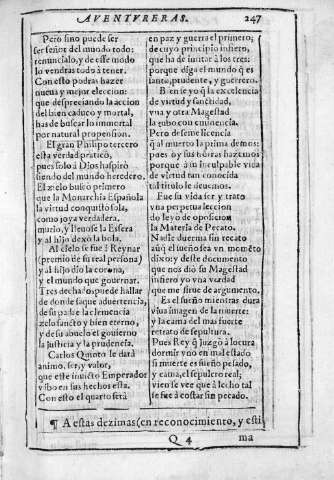 AVENTVRERAS. 247
Pero sino puede ser
ser señor del mundo todo:
renuncialo, y de esse modo
lo vendras todo à tener.
Con esto podras hazer
nueva y mejor eleccion:
que despreciando la accion
del bien caduco y mortal,
has de buscar lo immortal
por natural propension.
El gran Philipo tercero
esta verdad praticò,
pues solo à Dios haspirò
siendo del mundo heredero.
El zielo buscò primero
que la Monarchia Española
la virtud conquistò sola,
como joya verdadera.
muriò, y lleuose la Esfera
y al hijo dexò la bola.
Al cielo se fue à Reynar
(premio de su real persona)
y al hijo dio la corona,
y el mundo que gouernar.
Tres dechados puede hallar
de donde saque aduertencia,
de su padre la clemencia
zelo sancto y bien eterno,
y de su abuelo el gouierno
la justicia y la prudencia.
Carlos Quinto le darà
animo, ser, y valor,
que este invicto Emperador
vibo en sus hechos esta.
Con esto el quarto serà
en paz y guerra el primero;
de cuyo principio infiero,
que ha de imitar à los tres:
porque diga el mundo q̃ es
santo, prudente, y guerrero.
Bien se yo q̃ la excelencia
de virtud y sanctidad,
vna y otra Magestad
la hubo con eminencia.
Pero deseme licencia
q̃ al muerto la prima demos:
pues oy sus honras hazemos
porque à su inculpable vida
de virtud tan conocida
tal titulo le deuemos.
Fue su vida ser y trato
vna perpetua leccion
do leyò de oposicion
la Materia de Pecato.
Nadie duerma sin recato
aũq̃ el sueño sea vn memẽto
dixo: y deste documento
que nos diò su Magestad
infiero yo vna verdad
que me sirue de argumento.
Es el sueño mientras dura
viua imagen de la muerte:
y la cama del mas fuerte
retrato de sepultura.
Pues Rey q̃ juzgò à locura
dormir vno en mal estado
si muerte es sueño pesado,
y cama, el sepulcro real;
vien se vee que à lecho tal
se fue à costar sin pecado.
¶ A estas dezimas (en reconocimiento, y esti
Q 4 ma